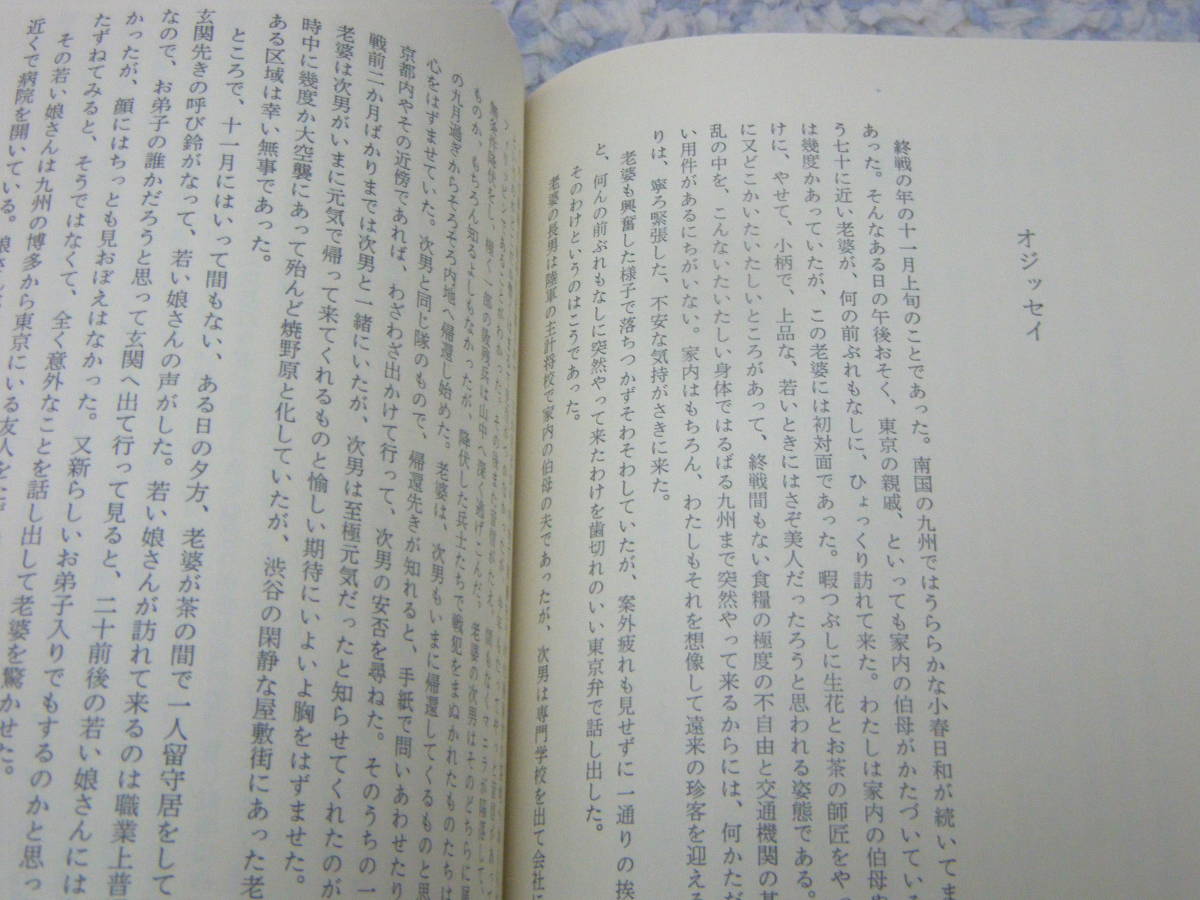 オジッセイ
終戦の年の十一月上旬のことであった。南国の九州ではうららかな小春日和が続いてま
あった。そんなある日の午後おそく、東京の親戚、といっても家内の伯母がかたづいている
う七十に近い老婆が、何の前ぶれもなしに、ひょっくり訪れて来た。わたしは家内の伯母や
は幾度かあっていたが、この老婆には初対面であった。暇つぶしに生花とお茶の師匠をやっ
けに、やせて、小柄で、上品な、若いときにはさぞ美人だったろうと思われる姿態である。
に又どこかいたいたしいところがあって、終戦間もない食糧の極度の不自由と交通機関の甚
乱の中を、こんないたいたしい身体ではるばる九州まで突然やって来るからには、何かただ
い用件があるにちがいない。家内はもちろん、わたしもそれを想像して遠来の珍客を迎える
りは、寧ろ緊張した、不安な気持がさきに来た。
老婆も興奮した様子で落ちつかずそわそわしていたが、案外疲れも見せずに一通りの挨
と、何んの前ぶれもなしに突然やって来たわけを歯切れのいい東京弁で話し出した。
そのわけというのはこうであった。
老婆の長男は陸軍の主計将校で家内の伯母の夫であったが、次男は専門学校を出て会社に
無条件降伏をし、極く一部の敗残兵は山中へ深く逃げこんだ。老婆の次男はそのどちらに属
ものか、もちろん知るよしもなかったが、降伏した兵士たちで戦犯をまぬかれたものたちは
の九月過ぎからそろそろ内地へ帰還し始めた。老婆は、次男もいまに帰還してくるものと思
心をはずませていた。次男と同じ隊のもので、帰還先きが知れると、手紙で問いあわせたり
京都内やその近傍であれば、わざわざ出かけて行って、次男の安否を尋ねた。そのうちの一
戦前二か月ばかりまでは次男と一緒にいたが、次男は至極元気だったと知らせてくれたのが
老婆は次男がいまに元気で帰って来てくれるものと愉しい期待にいよいよ胸をはずませた。
時中に幾度か大空襲にあって殆んど焼野原と化していたが、渋谷の閑静な屋敷街にあった老
ある区域は幸い無事であった。
ところで、十一月にはいって間もない、ある日の夕方、老婆が茶の間で一人留守居をして
玄関先きの呼び鈴がなって、若い娘さんの声がした。若い娘さんが訪れて来るのは職業上普
なので、お弟子の誰かだろうと思って玄関へ出て行って見ると、二十前後の若い娘さんには
かったが、顔にはちっとも見おぼえはなかった。又新らしいお弟子入りでもするのかと思っ
たずねてみると、そうではなくて、全く意外なことを話し出して老婆を驚かせた。
その若い娘さんは九州の博多から東京にいる友人を
近くで病院を開いている。